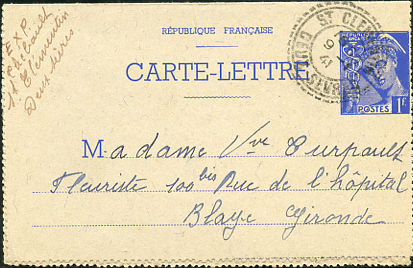 EXP
St Clementin
Deux Sèvres
RÉPUBLIQUE FRANÇAISE
CARTE-LETTRE
ST CLEM
POSTES 1F
Madame Vve Turpault
Fleuriste 100 bis Rue de l'hôpital
Blaye Gironde